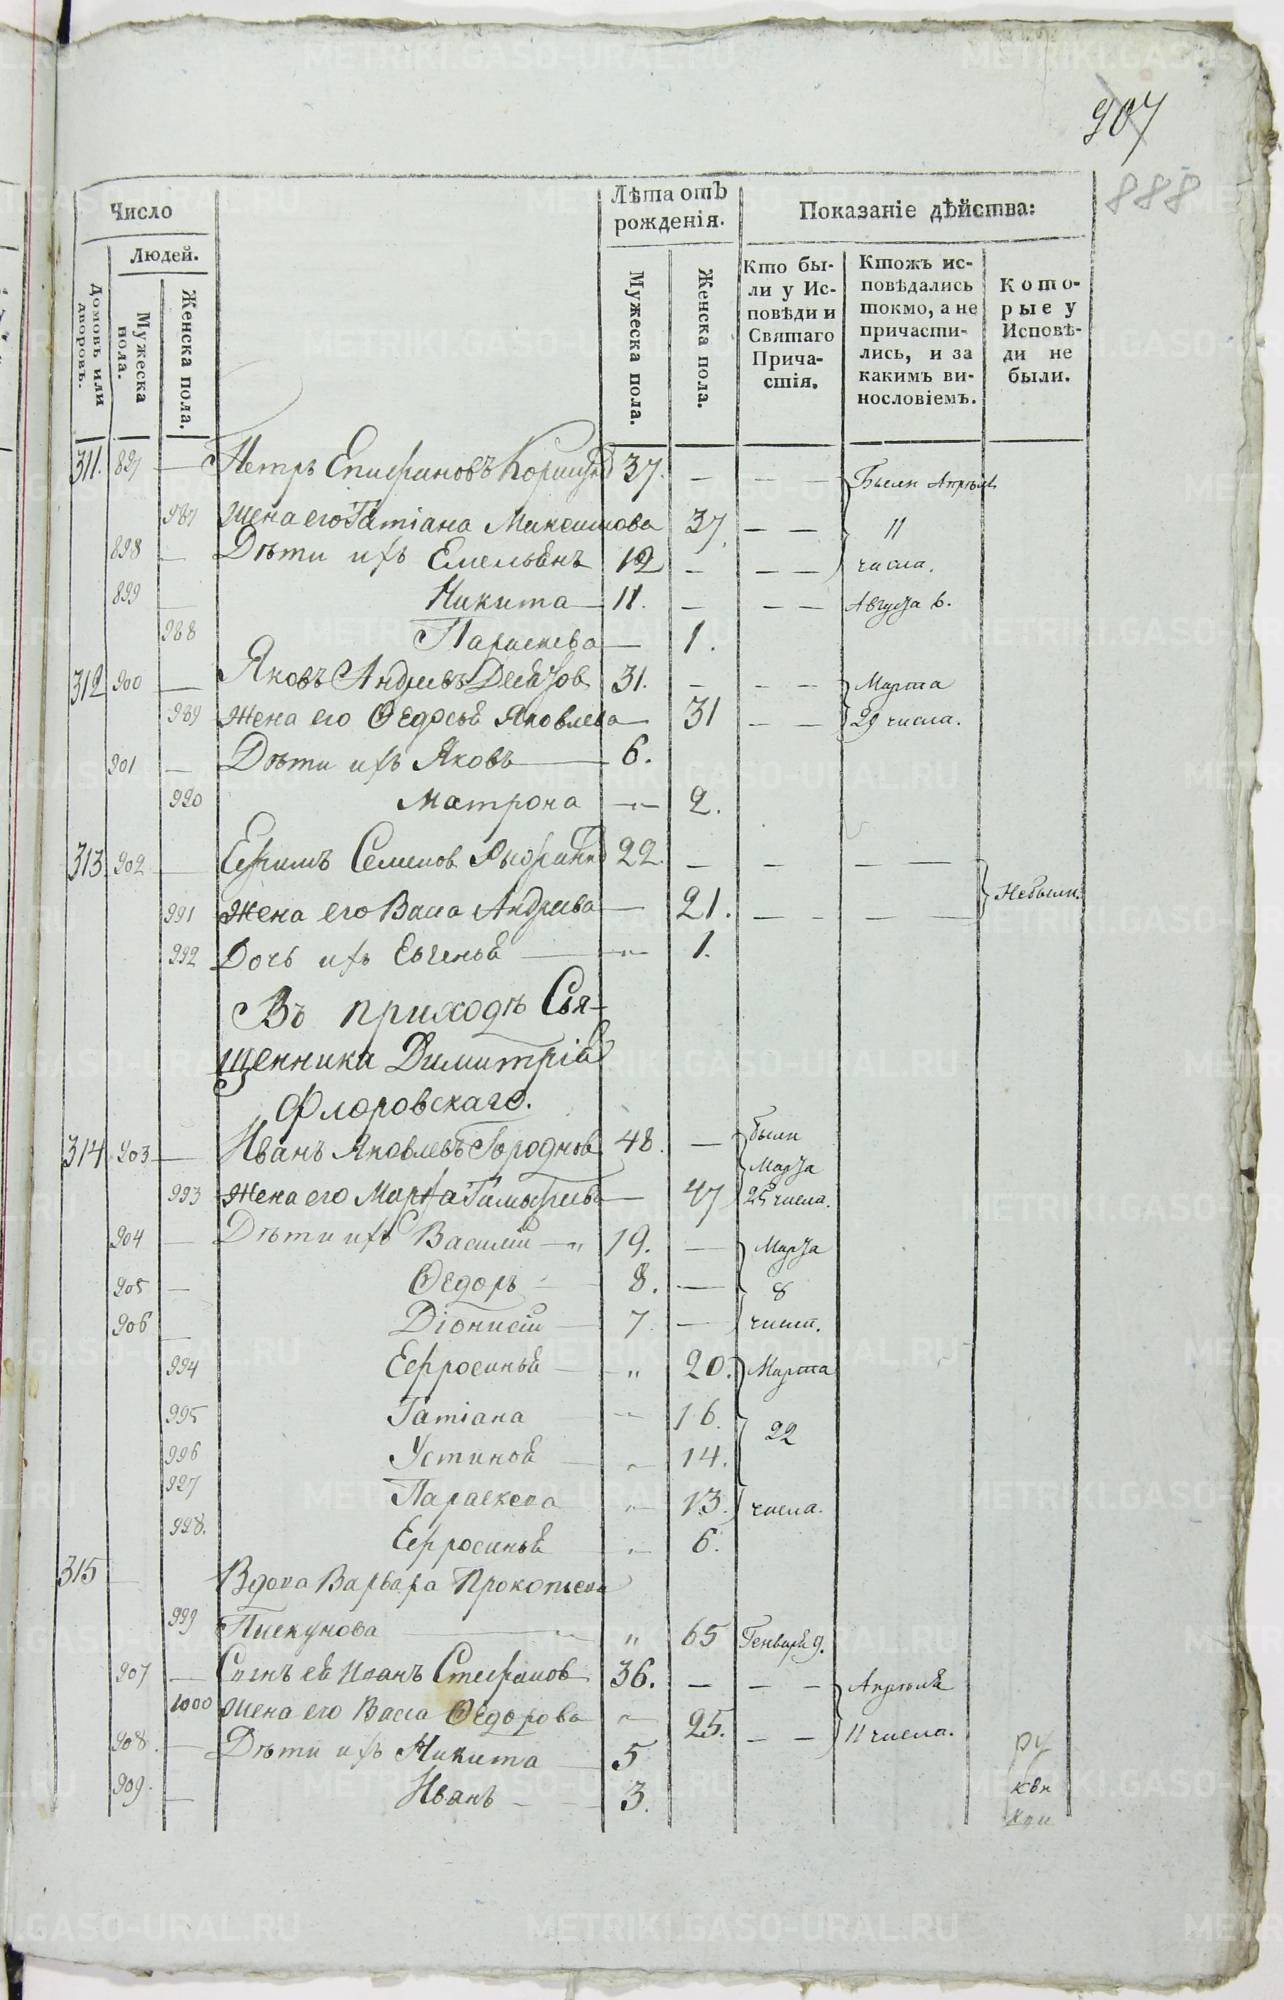 907
888
Число
Людей.
Домовъ или дворовъ.
Мужеска пола.
Женска пола.
Лѣта отъ рожденія.
Мужеска пола.
Женска пола.
Показаніе дѣйства:
Кто бы-
ли у Ис-
повѣди и
Святаго
Прича-
стія.
Ктожъ ис-
повѣдались
токмо, а не
причасти-
лись, и за
какимъ ви-
нословіемъ.
Кото-
рые у
Исповѣ-
ди не
были.
311. 897 — Петръ Епифановъ 37. — — — Были Апрѣля
987 Жена его Татіана Максимова 37. — — 11
898 — Дѣти ихъ Емельянъ 12 — — — числа.
899 — Никита — 11. — — — Августа 6.
988 Параскева — 1.
312 900 — Яковъ Андреевъ 31. — — — Марта
989 Жена его Ѳедосья Яковлева — 31 — — 29 числа.
901 — Дѣти ихъ Яковъ — 6.
990 Матрона — 2.
313 902 — Ефимъ Семенов 22. — — — —
991 Жена его Васа Андреева — 21. — — — — Небыли.
992 Дочь ихъ Евгенья — 1.
Въ приходѣ Свя-
щенника Димитрія
Флоровскаго.
314 903 — Иванъ Яковлевъ Городновъ 48. — были
Марта
993 Жена его Марѳа — 47 25 числа.
904 — Дѣти ихъ Василій — „ 19. — Марта
905 — Ѳедоръ — 8. — 8
906 — Діонисій — 7 — числ.
994 Ефросинья — „ 20. Марта
995 Татіана „ 16.
996 Устинья — „ 14. 22
997 Параскева „ 13. числа.
998. Ефросинья „ 6.
315 — Вдова Варвара Прокопьева
999 Пискунова — „ 65 Генваря 9.
907 — Сынъ ея Иванъ Стефановъ 36. — — — Апрѣля
1000 Жена его Васса Ѳедорова „ 25. — — 11 числа.
908. — Дѣти ихъ Никита — 5
909. — Иванъ — 3.
METRIKI.GASO-URAL.RU